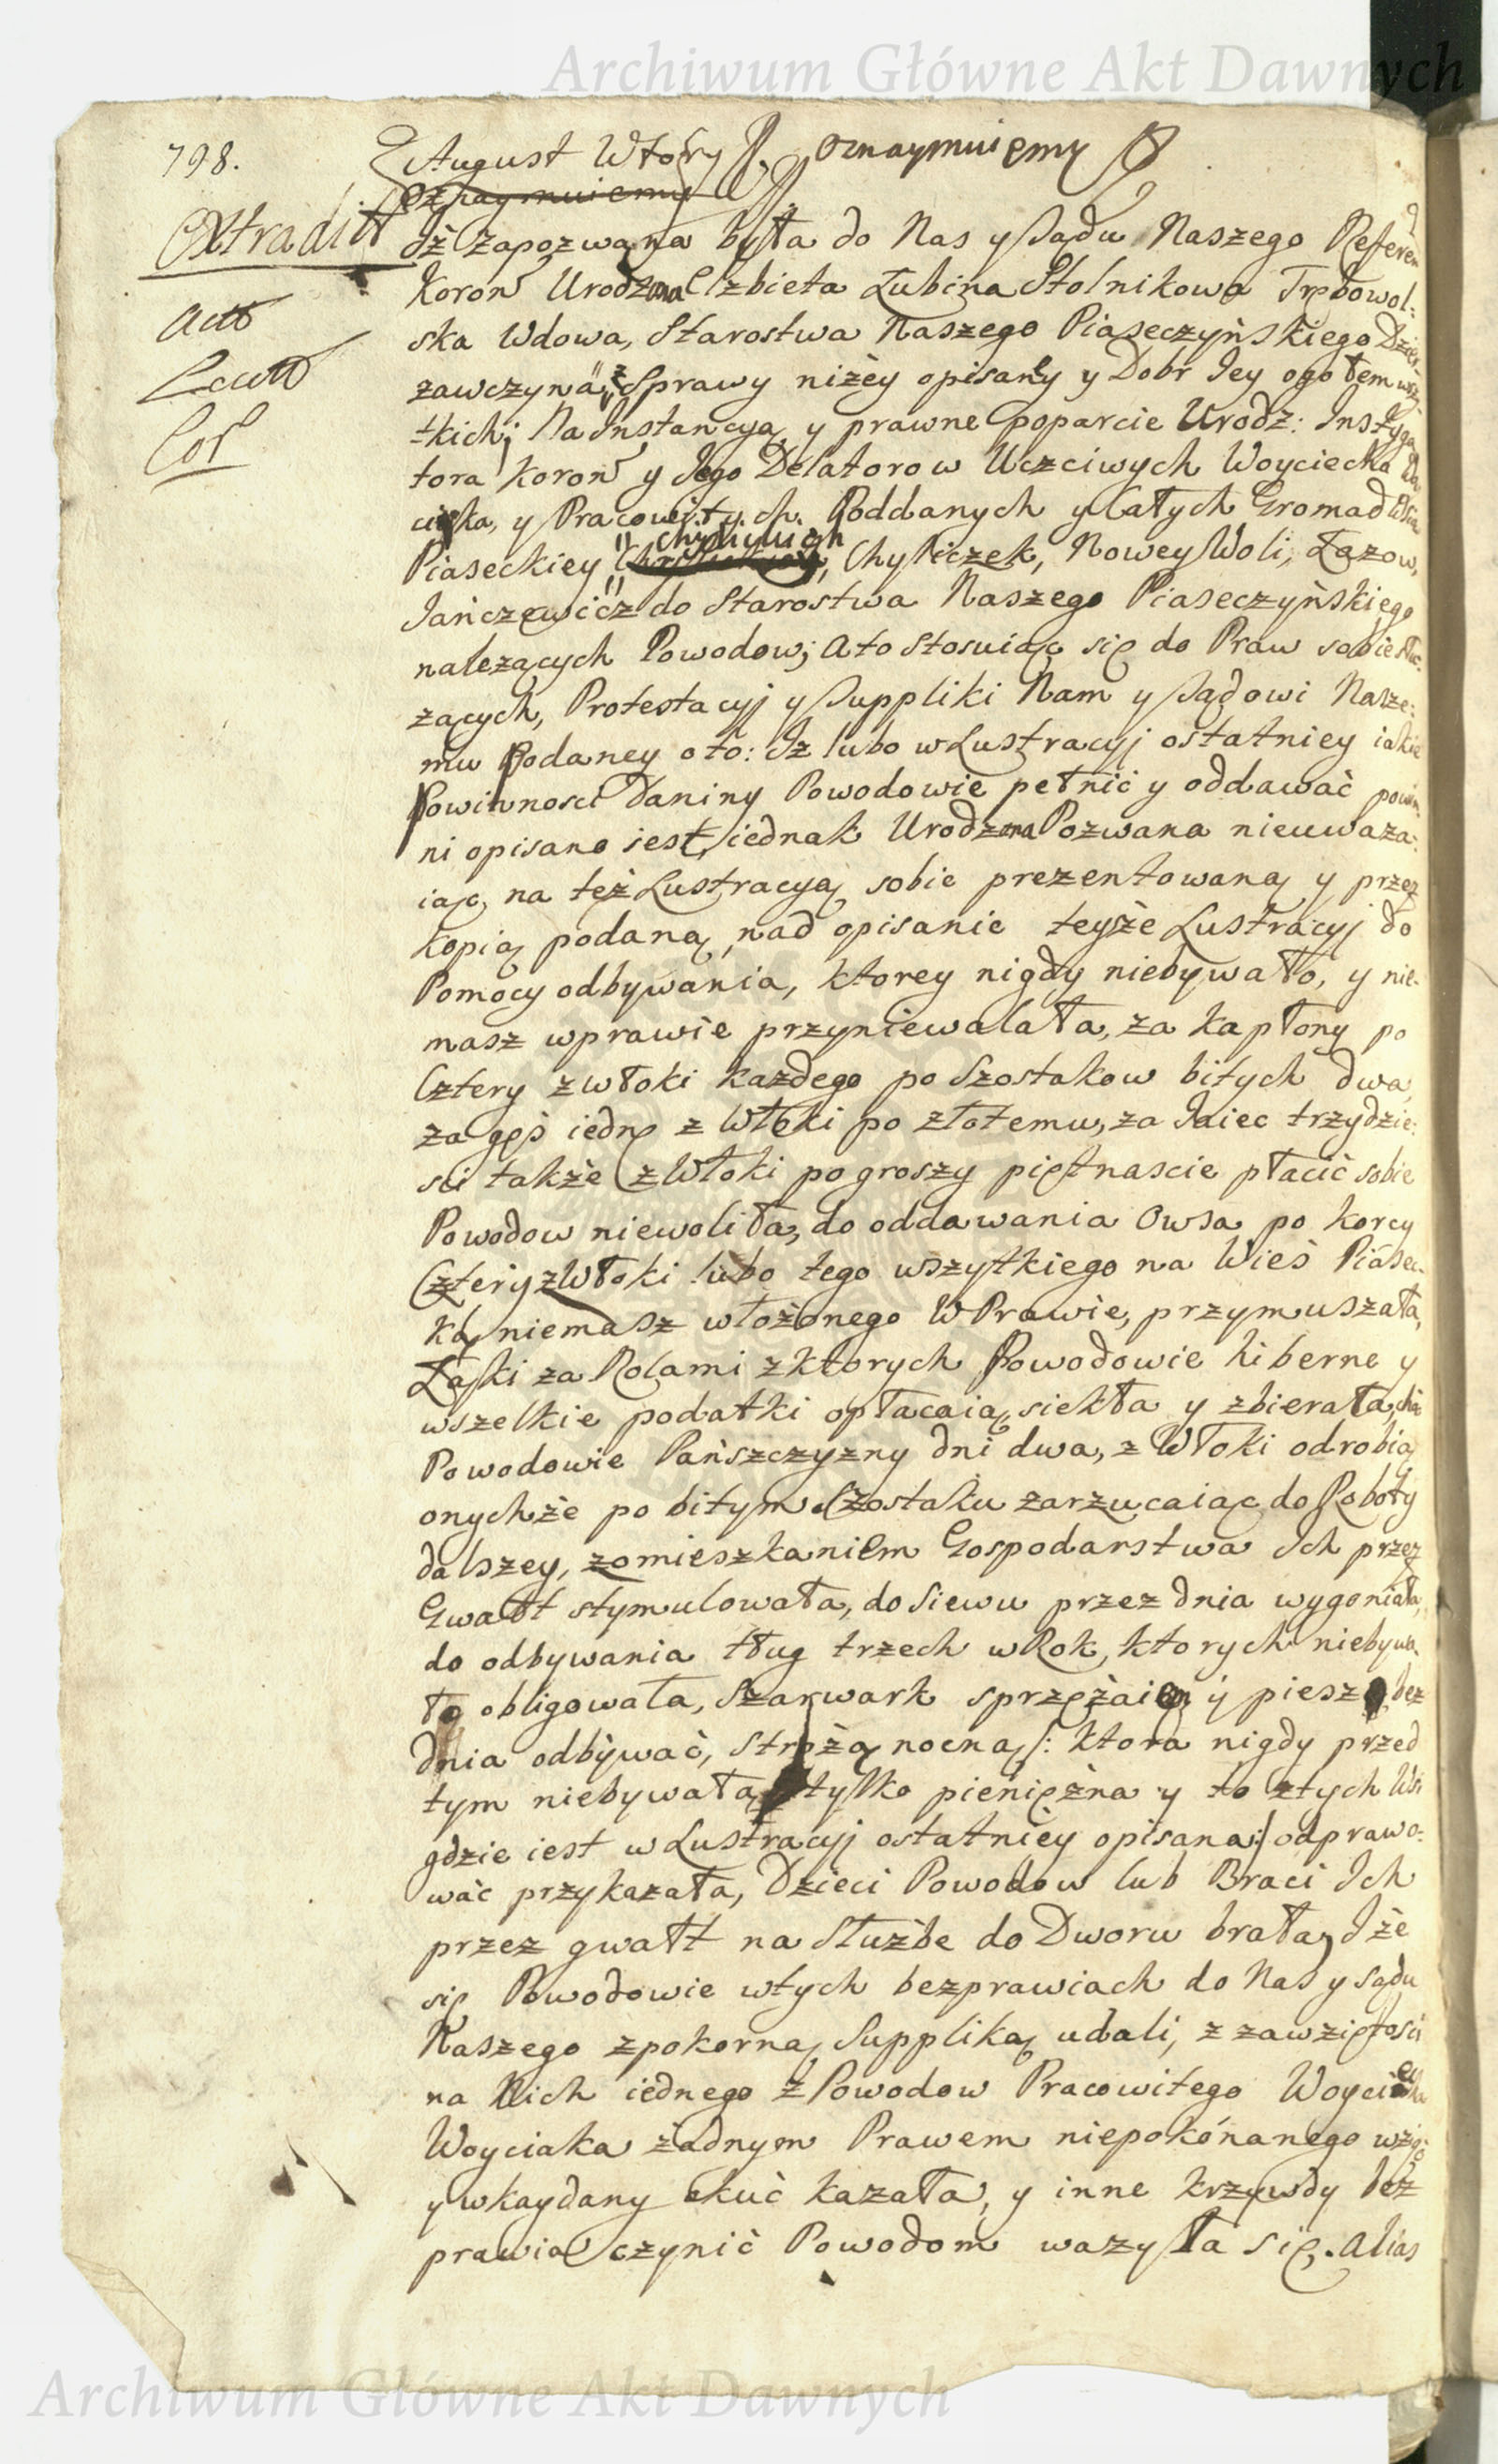 Archiwum Główne Akt Dawnych
798.
August Wtory oznaymuiemy
oznaymuiemy
Extradit
Iż zapozwana była do Nas y Sądu Naszego Referen
Koron Urodzona Elzbieta Łubina Stolnikowa Trębowol:
Actt
ska Wdowa, Starostwa Naszego Piaseczyńskiego Dzier
Lectt
zawczyna z Sprawy niżey opisaney y Dobr Jey ogołem wszy
Cor
tkich; Na Instancyą y prawne poparcie Urodz: Instyga
tora Koron y Jego Delatorow Uczciwych Woyciecha
ciaka, y Pracowitych Poddanych y Całych Gromad Wsiow
Piaseckiey Chylic, Chyliczek, Nowey Woli, Łazow,
Jańczewicz do Starostwa Naszego Piaseczyńskiego
należących Powodow; A to Stosuiąc się do Praw sobie słu:
zących, Protestacyj y Suppliki Nam y Sądowi Nasze:
mu Podaney oto: Iz lubo w Lustracyj ostatniey iakie
Powinnosci Daniny Powodowie pełnić y oddawać powin
ni opisano iest, iednak Urodzona Pozwana nieuwaza:
iąc, na też Lustracyą sobie prezentowaną y przez
kopią podaną, nad opisanie teyże Lustracyj do
Pomocy odbywania, ktorey nigdy niebywało, y nie:
masz wprawie przyniewalała, za kapłony po
Cztery z włoki każdego po Szostakow bitych dwa,
za gęś iednę z Włoki po złotemu, za Jaiec trzydzie:
sci także z Włoki po groszy piętnascie płacić sobie
Powodow niewoliła, do oddawania Owsa po korcy
Cztery z Włoki lubo tego wszytkiego na Wieś Piasec:
ką niemasz włożonego W Prawie, przymuszała,
Łąki za Rolami z ktorych Powodowie hiberne y
wszelkie podatki opłacaią, siekła y zbierała, choć
Powodowie Pańszczyzny dni dwa, z Włoki odrobią
onychże po bitym Szostaku zarzucaiąc do Roboty
dalszey, zomieszkaniem Gospodarstwa Ich przez
Gwałt stymulowała, do Siewu przez dnia wyganiała,
do odbywania tług trzech w Rok, ktorych niebywa:
ło obligowała, Szarwark sprzężaię y pieszo bez
dnia odbywać, Stróżą nocną /: ktora nigdy przed
tym niebywała, tylko pieniężna y to z tych Wsi
gdzie iest w Lustracyj ostatniey opisana :/ odprawo:
wać przykazała, Dzieci Powodow lub Braci Ich
przez gwałt na Służbe do Dworu brała, Iże
się Powodowie wtych bezprawiach do Nas y Sądu
Naszego zpokorną Suppliką udali, z zawziętosci
na Nich iednego z Powodow Pracowitego Woyciecha
Woyciaka żadnym Prawem niepokónanego wziąć
y wkaydany okuć kazała, y inne krzywdy bez
prawia czynić Powodom wazyła się. Alias
Archiwum Główne Akt Dawnych